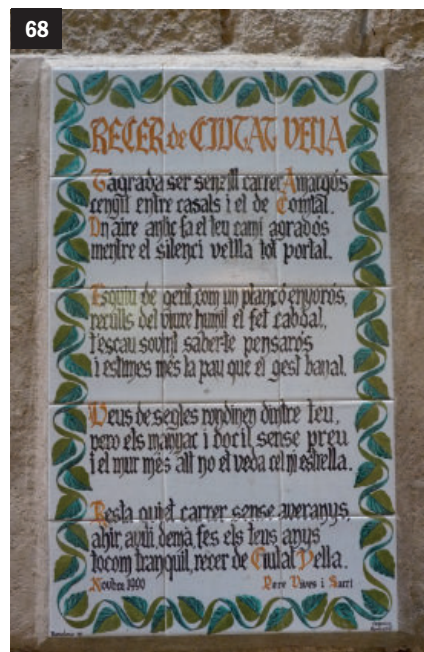 68
RECER de CIUTAT VELLA
T'agrada ser senzill carrer Amargós
cenyit entre casals i el de Comtal.
Un aire antic fa el teu camí agradós
mentre el silenci vetlla tot portal.
Esquiu de gent, com un plançó enyorós,
reculls del viure humil el fet cabdal,
t'escau sovint saber-te pensarós
i estimes més la pau que el gest banal.
Veus de segles rondinen dintre teu,
però els manyac i dòcil sense preu
i el mur més alt no et veda cel ni estrella.
Resta quiet carrer sense averanys,
ahir, avui, demà, fes els teus anys
tocom tranquil, recer de Ciutat Vella.
Novbre 1990 Pere Vives i Sarri